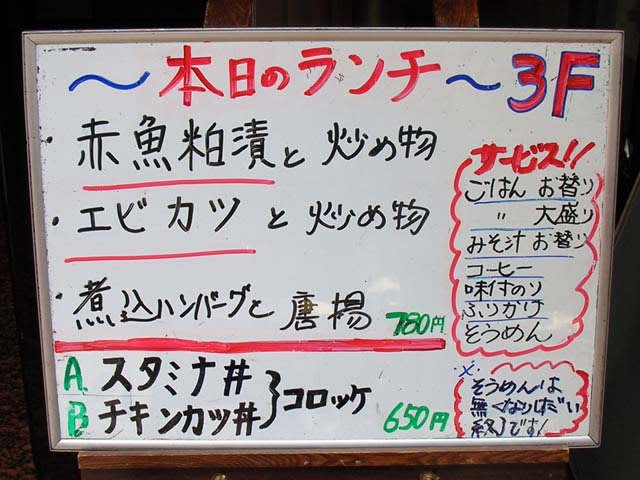 ～本日のランチ～3F
赤魚粕漬と炒め物
・エビカツと炒め物
・煮込ハンバーグと唐揚 780円
A スタミナ丼
B チキンカツ丼 }コロッケ 650円
サービス!!
ごはん お替り
〃 大盛り
みそ汁 お替り
コーヒー
味付のり
ふりかけ
そうめん
※
そうめんは
無くなりしだい
終了です!